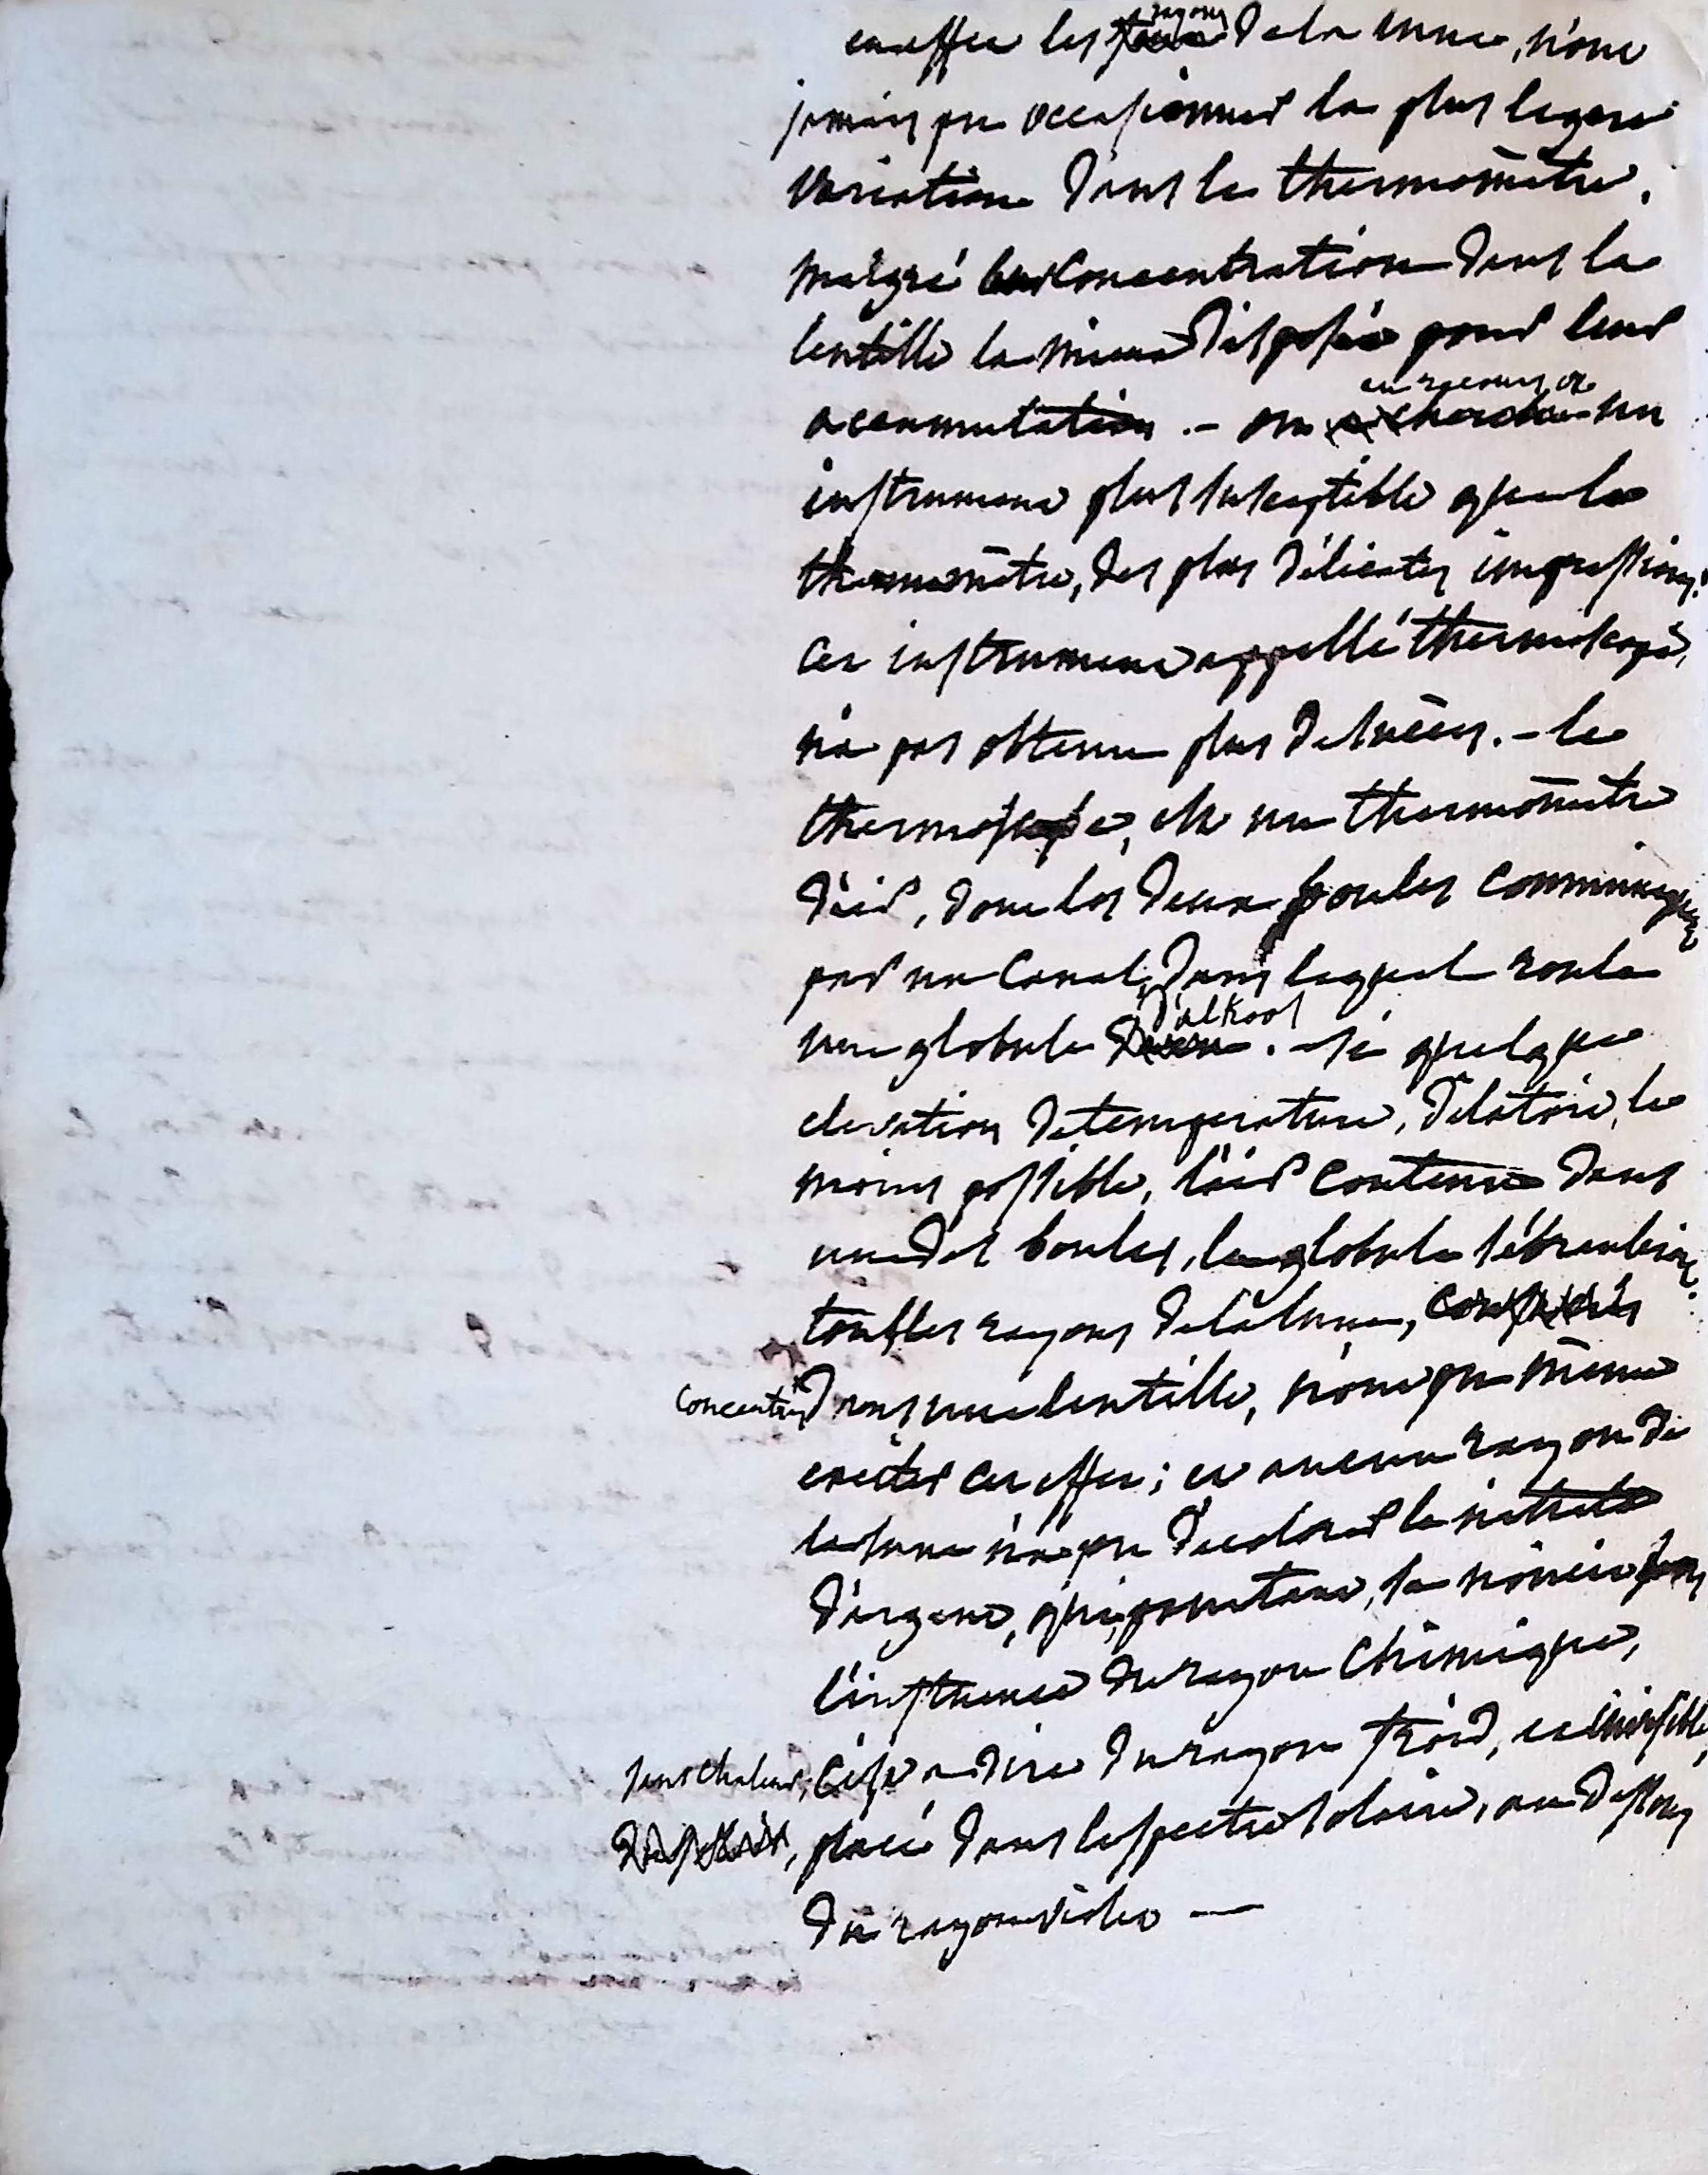 en effet les rayons de la lune, n'ont
jamais pu occasionner la plus legere
variation dans le thermomètre,
malgré leur concentration dans la
lentille la mieux disposée pour leur
accumulation. - on a eu recours a un
instrument plus suseptible que le
thermomètre, des plus délicates impressions.
cet instrument appellé thermoscope,
n'a pas obtenu plus de succès. - le
thermoscope, est un thermomètre
d'air, dont les deux boules communiquent
par un canal, dans lequel roule
une globule d'alkool. - si quelque
elevation de temperature, dilatoit, le
moins possible, l'air contenu dans
une des boules, la globule s'ébranleroit.
tous les rayons de la lune,
concentrés dans une lentille, n'ont pu même
exciter cet effet; et aucun rayon de
la lune n'a pu decolorer le nitrate
d'argent, qui, pourtant, se noircit sous
l'influence du rayon chimique,
sans chaleur, c'est a dire du rayon froid, et invisible,
placé dans le spectre solaire, au dessous
du rayon violet —